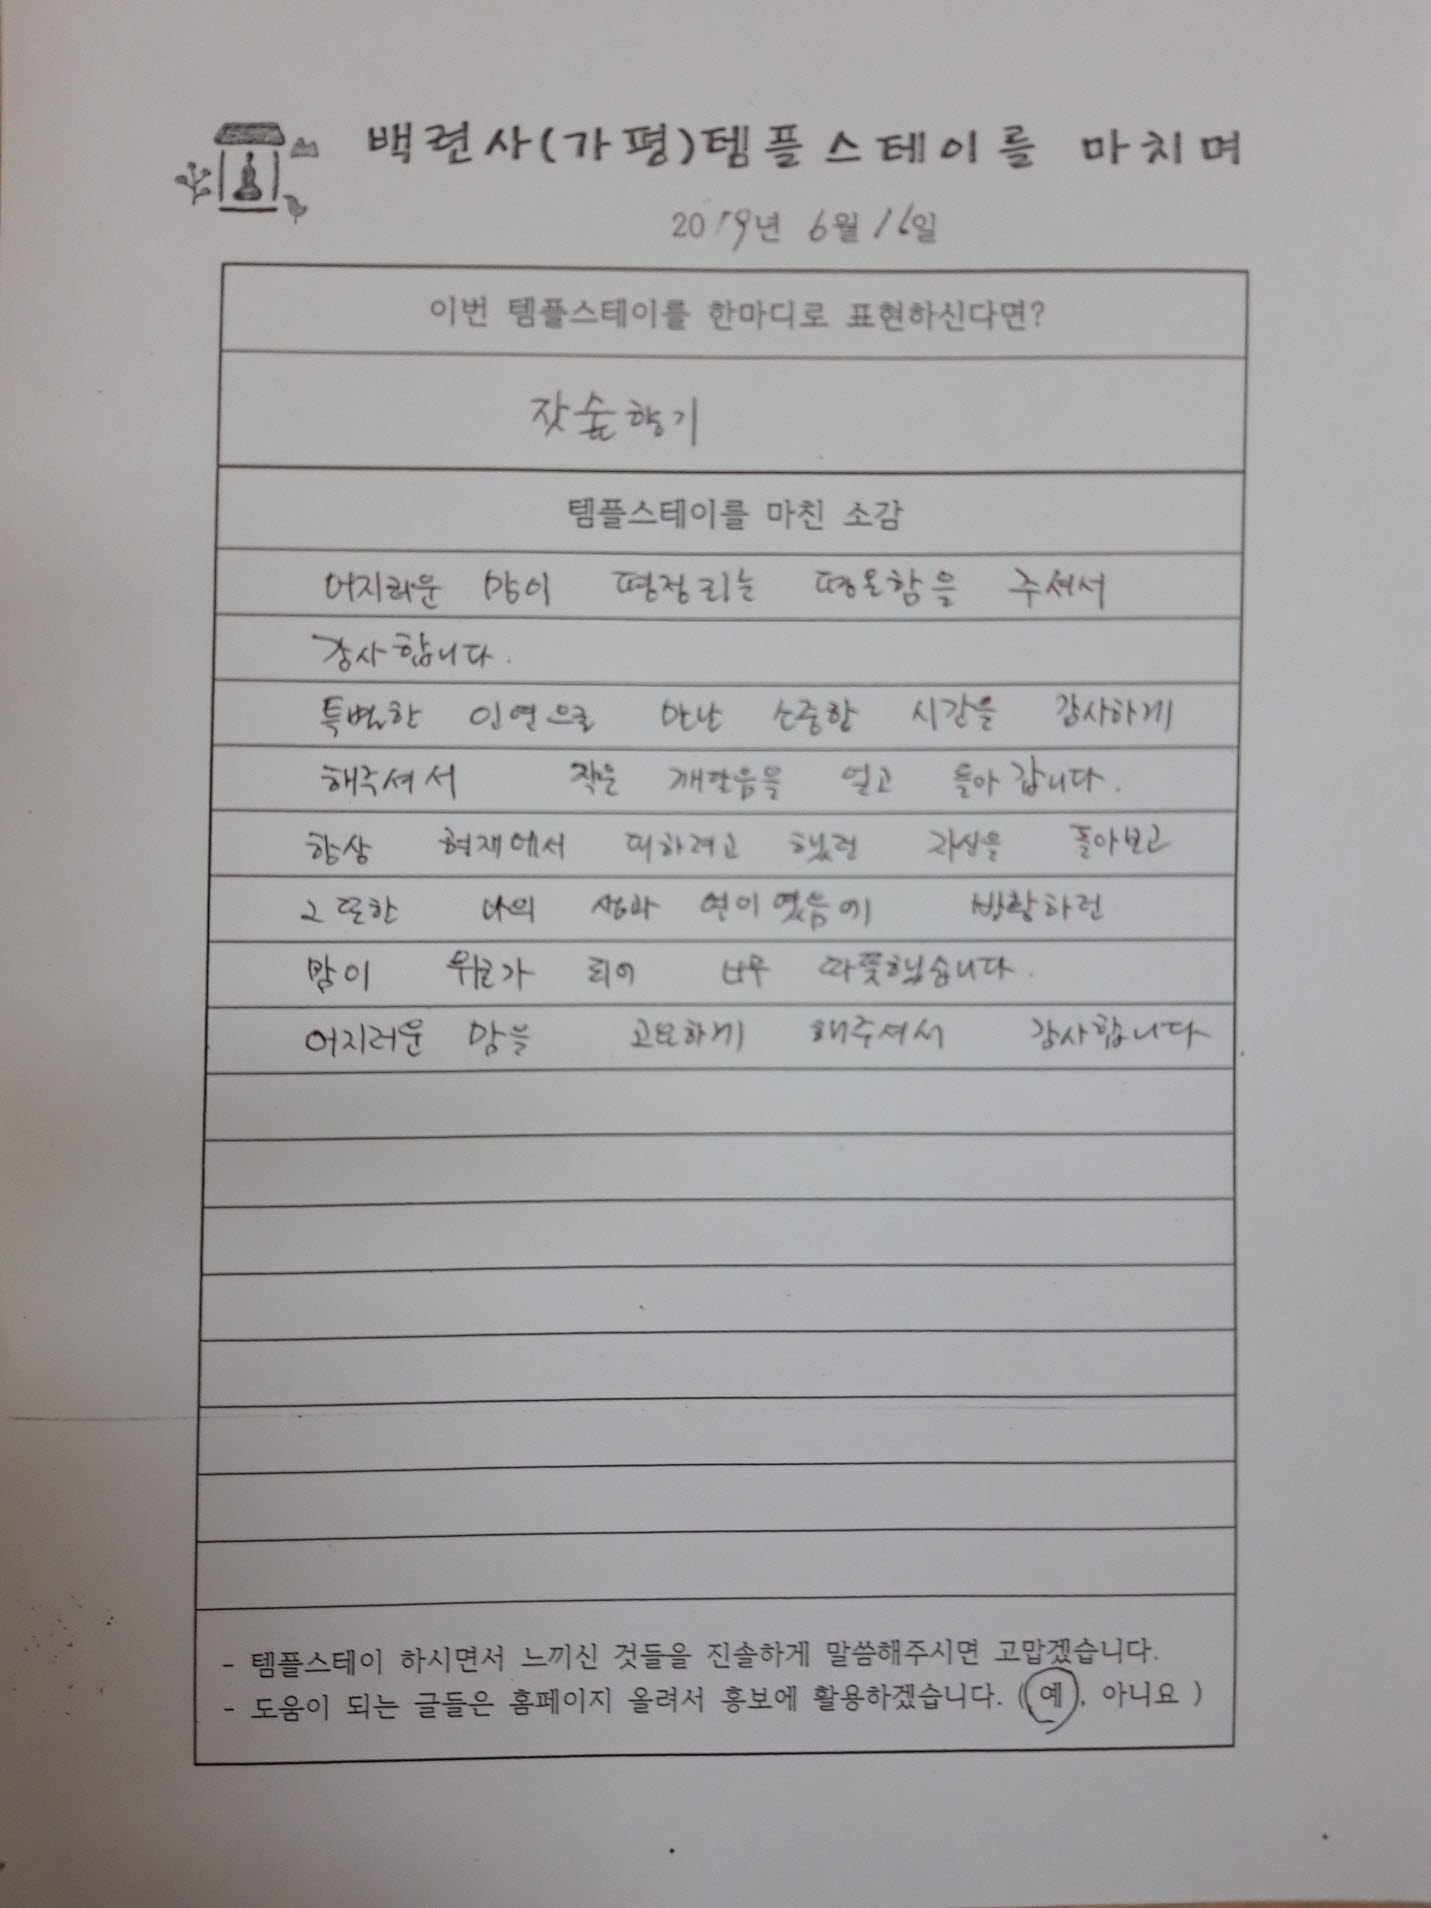 백련사(가평)템플스테이를 마치며
2019년 6월 16일
이번 템플스테이를 한마디로 표현하신다면?
잣숲향기
템플스테이를 마친 소감
어지러운 맘이 평정되는 평온함을 주셔서
감사합니다.
특별한 인연으로 만난 소중한 시간을 감사하게
해주셔서 작은 깨달음을 얻고 돌아 갑니다.
항상 현재에서 피하려고 했던 자신을 돌아보고
그 또한 나의 생과 연이였음에 방황하던
맘이 위로가 되어 너무 따뜻했습니다.
어지러운 맘을 고요하게 해주셔서 감사합니다
- 템플스테이 하시면서 느끼신 것들을 진솔하게 말씀해주시면 고맙겠습니다.
- 도움이 되는 글들은 홈페이지 올려서 홍보에 활용하겠습니다. (예, 아니요 )